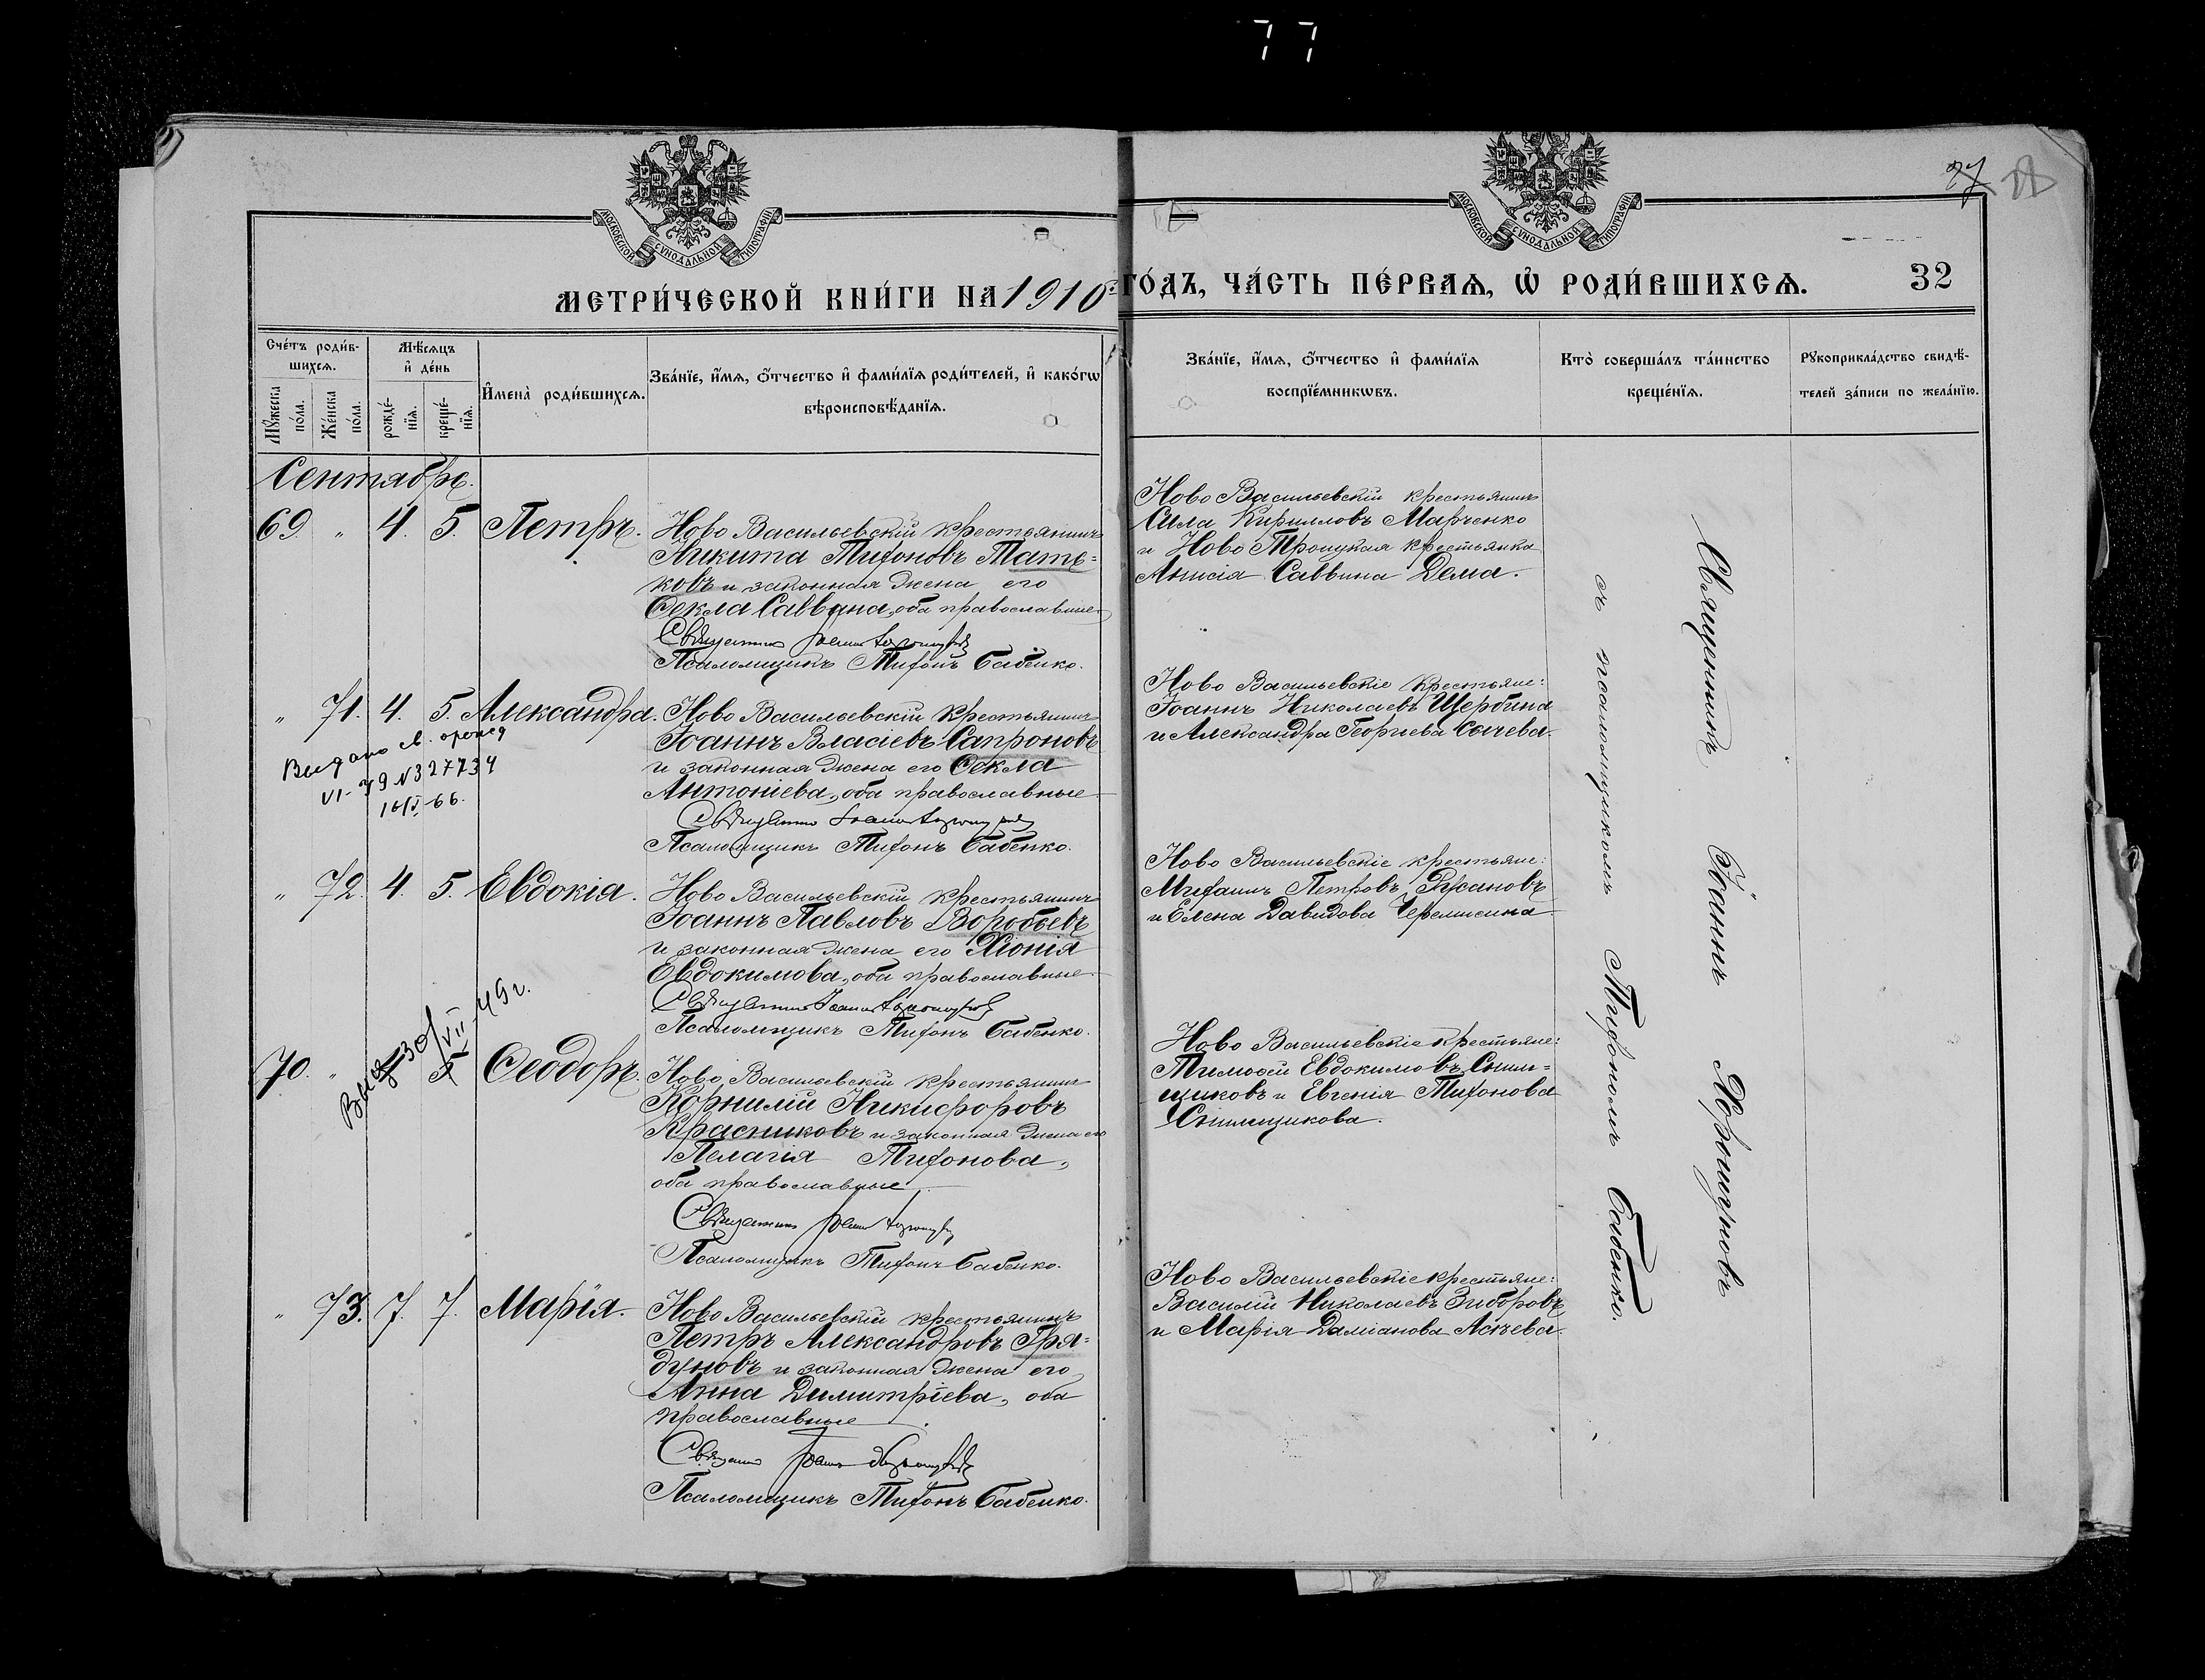 77
77
МОСКОВСКОЙ СѴНОДАЛЬНОЙ ТИПОГРАФІИ
МОСКОВСКОЙ СѴНОДАЛЬНОЙ ТИПОГРАФІИ
МЕТРИ́ЧЕСКОЙ КНИ́ГИ НА 1910 ГО́ДЪ, ЧА́СТЬ ПЕ́РВАѦ, Ѽ РОДИ́ВШИХСѦ. 32
Сче́тъ роди́в-
шихсѧ.
Мꙋ́жеска
по́ла.
Же́нска
по́ла.
Мѣ́сѧцъ
и҆ де́нь
рожде́-
нїѧ.
креще́-
нїѧ.
И҆мена̀ роди́вшихсѧ.
Зва́нїе, и҆́мѧ, ѻ҆́тчество и҆ фами́лїѧ роди́телей, и҆ како́гѡ
вѣроисповѣ́данїѧ.
Зва́нїе, и҆́мѧ, ѻ҆́тчество и҆ фами́лїѧ
воспрїе́мникѡвъ.
Кто̀ соверша́лъ та́инство
креще́нїѧ.
Рꙋкоприкла́дство свидѣ́-
телей за́писи по жела́нїю.
Сентябрь.
69 " 4. 5. Петръ.
Ново Васильевскій крестьянинъ
Никита Тихоновъ
и законная жена его
Ѳекла Саввина, оба православные
Священникъ Іоаннъ
Псаломщикъ Тихонъ Бабенко.
Ново Васильевскій крестьянинъ
Сила Кирилловъ Марченко
и Ново Троицкая крестьянка
Анисія Саввина Дема.
" 71. 4. 5. Александра.
Выдано св.
VI-
16/I-66.
Ново Васильевскій крестьянинъ
Іоаннъ Власіевъ Сапроновъ
и законная жена его Ѳекла
Антоніева, оба православные
Священникъ Іоаннъ
Псаломщикъ Тихонъ Бабенко.
Ново Васильевскіе крестьяне:
Іоаннъ Николаевъ Щербина
и Александра Георгіева Сычева.
" 72. 4. 5. Евдокія.
Ново Васильевскій крестьянинъ
Іоаннъ Павловъ Воробьевъ
и законная жена его Хіонія
Евдокимова, оба православные
Священникъ Іоаннъ
Псаломщикъ Тихонъ Бабенко.
Ново Васильевскіе крестьяне:
Михаилъ Петровъ Русановъ
и Елена Давидова Черемисина
70. " Ѳеодоръ.
30/VII-49г.
Ново Васильевскій крестьянинъ
Корнилій Никифоровъ
Красниковъ и законная жена его
Пелагія Тихонова,
оба православные
Священникъ Іоаннъ
Псаломщикъ Тихонъ Бабенко.
Ново Васильевскіе крестьяне:
Тимоѳей Евдокимовъ
и Евгенія Тихонова
" 73. 7. 7. Марія.
Ново Васильевскій крестьянинъ
Петръ Александровъ Гря-
дуновъ и законная жена его
Анна Димитріева, оба
православные
Священникъ Іоаннъ
Псаломщикъ Тихонъ Бабенко.
Ново Васильевскіе крестьяне:
Василій Николаевъ Зиборовъ
и Марія Даміанова
Священникъ Іоаннъ
съ псаломщикомъ Тихономъ Бабенко.